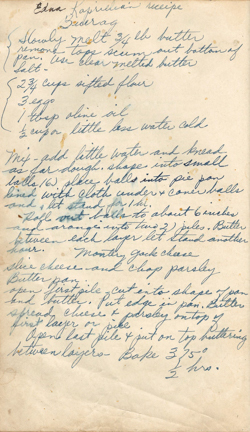 Edna recipe
Slowly melt 3/4 lb butter
remove tops scum out bottom of
pan. Use clear melted butter
salt-
2 3/4 cups sifted flour
3 eggs
1 tbsp olive oil
1/2 cup or little less water cold
Mix - add little water and knead
as for dough. shape into small
balls (6) place balls into pie pan
lined with cloth under & cover balls
and let stand for 1 hr.
Roll out balls to about 6 inches
and arrange into two 3 piles. Butter
between each layer let stand another
hour. Montery jack cheese
slice cheese and chop parsley
Butter pan,
open first pile, cut into shape of pan
and butter. Put edge in pan. Butter
spread cheese & parsley on top of
first layer or pile
Open last pile & put on top buttering
between layers - Bake 375°
1/2 hrs.